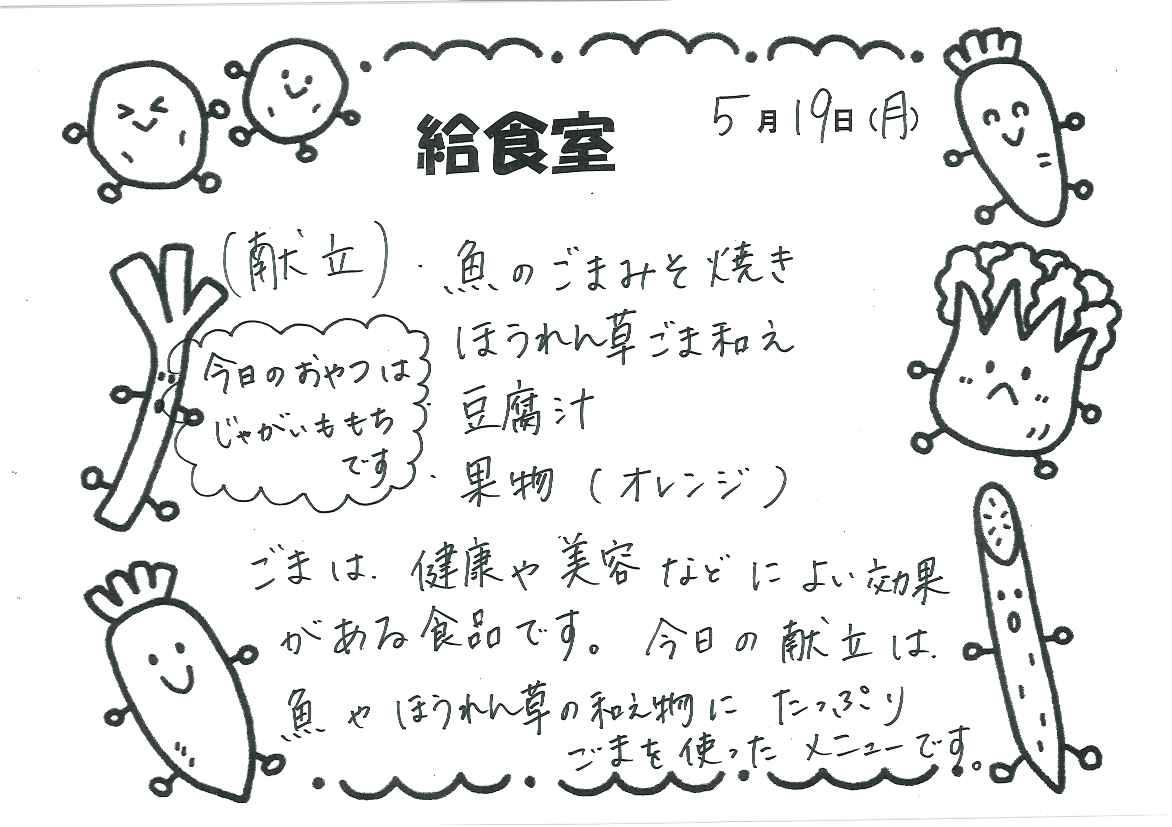 給食室
5月19日(月)
(献立)・魚のごまみそ焼き
ほうれん草ごま和え
・豆腐汁
・果物(オレンジ)
今日のおやつは
じゃがいももち
です
ごまは、健康や美容などによい効果
がある食品です。今日の献立は、
魚やほうれん草の和え物にたっぷり
ごまを使ったメニューです。